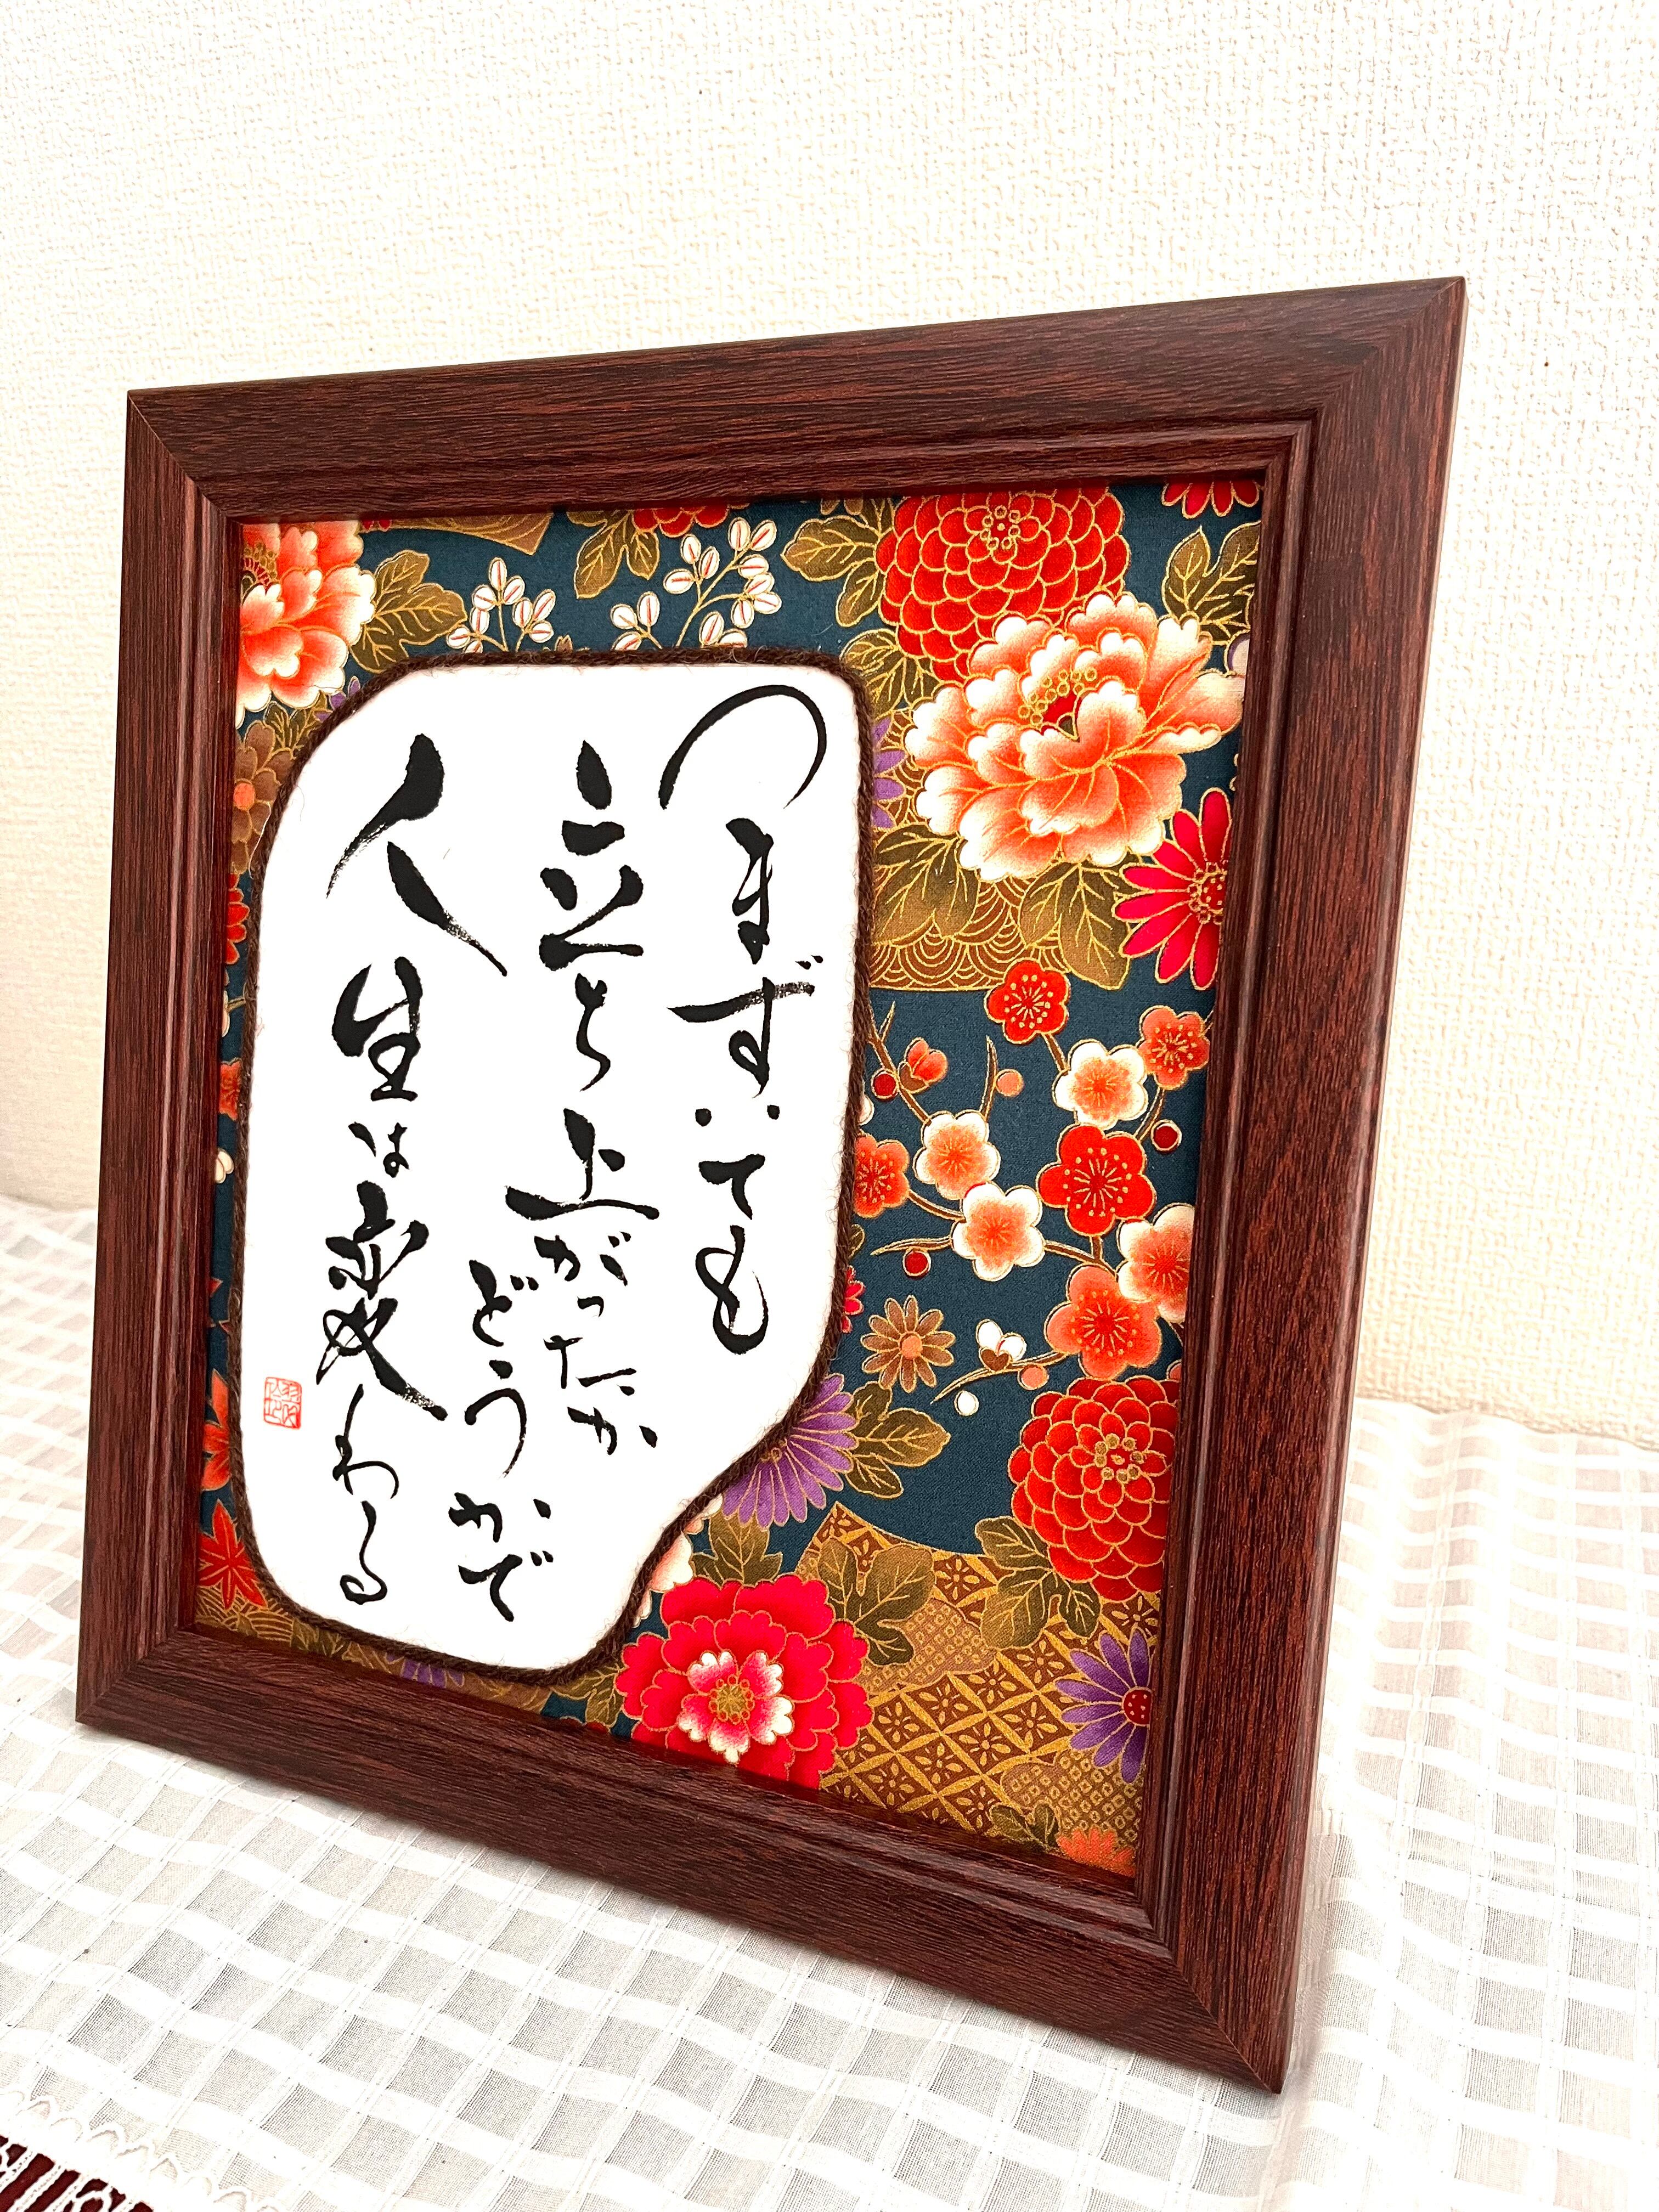 つまずいても
立ち上がったか
どうかで
人生は変わる